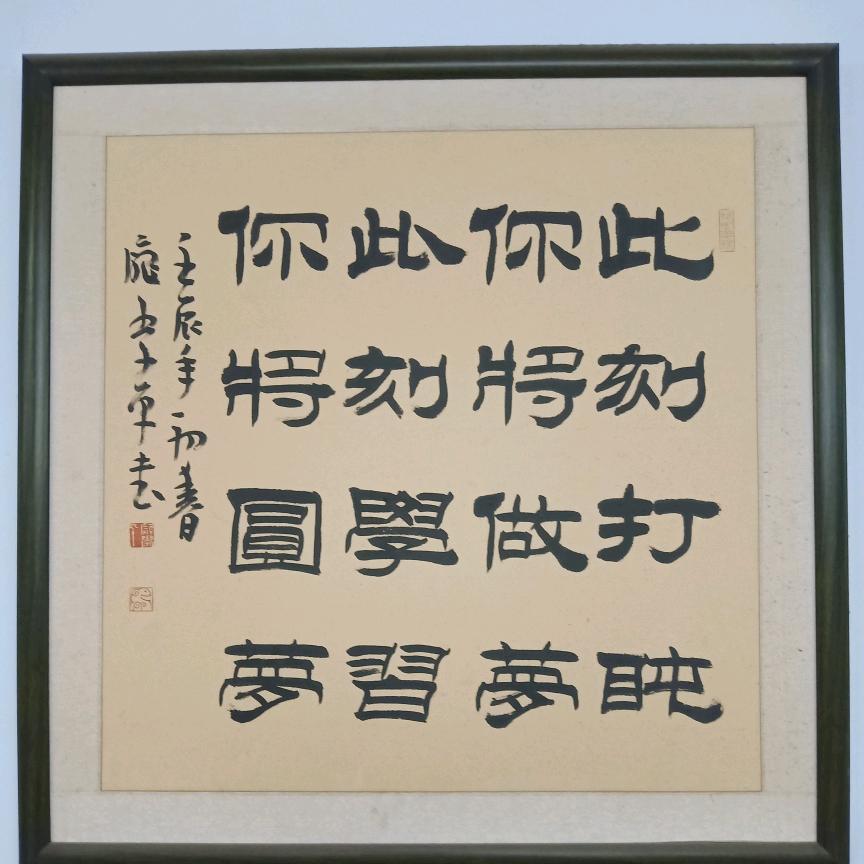 此刻打盹
你將做夢
此刻學習
你將圓夢
壬辰年初春
書